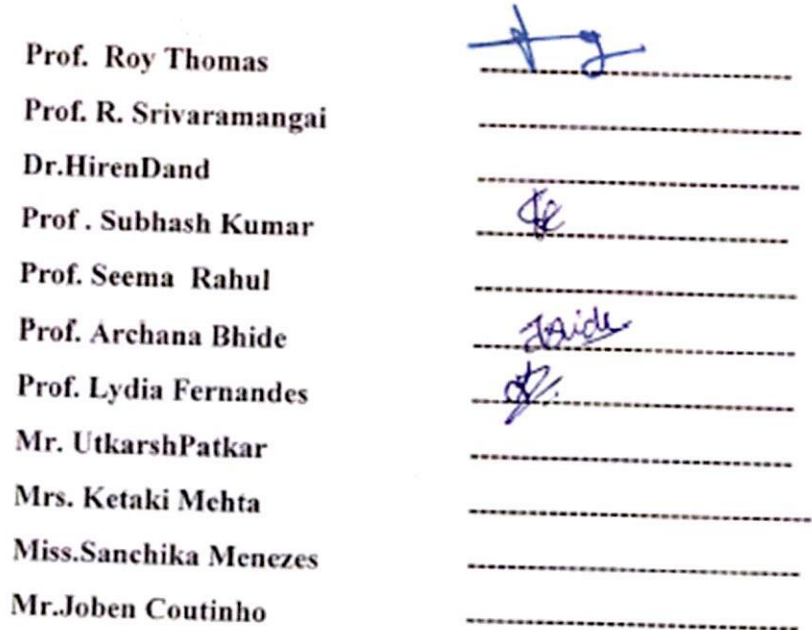 Prof. Roy Thomas
Prof. R. Srivaramangai
Dr.HirenDand
Prof . Subhash Kumar
Prof. Seema Rahul
Prof. Archana Bhide
Prof. Lydia Fernandes
Mr. UtkarshPatkar
Mrs. Ketaki Mehta
Miss.Sanchika Menezes
Mr.Joben Coutinho